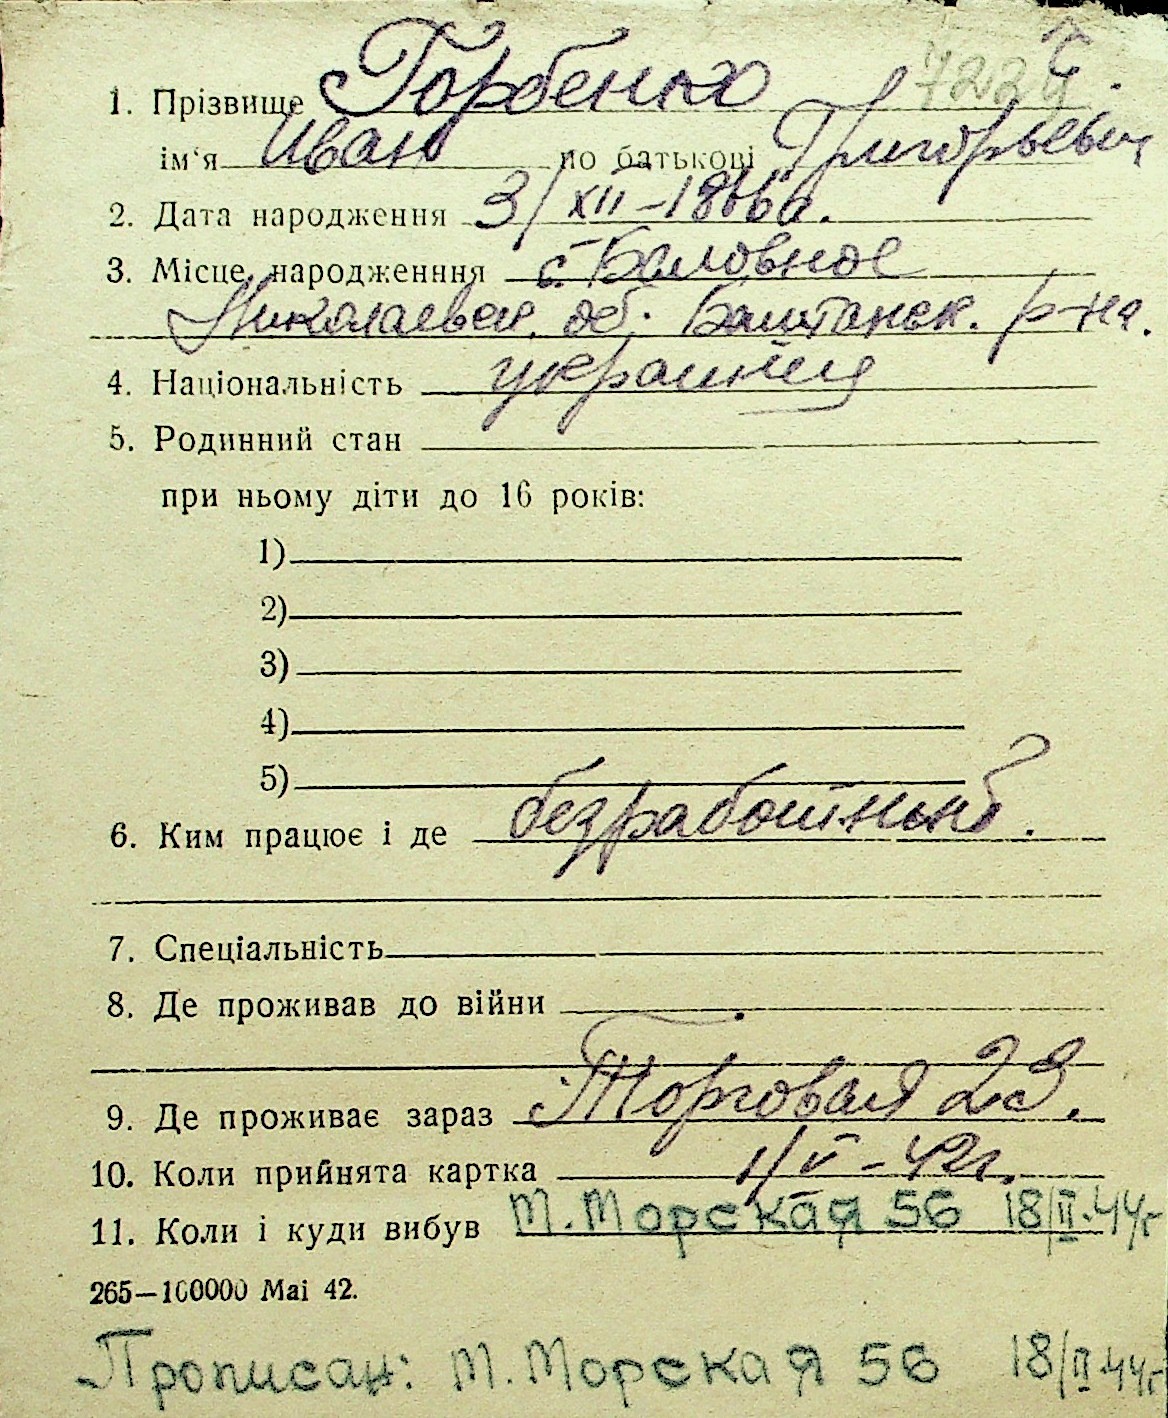 1. Прізвище Горбенко
ім‘я Иван по батькові Григорьевич
2. Дата народження 3/XII-1886г.
3. Місце народженння с. Баловное
Николаевск. об. Баштанск. р-на.
4. Національність украинец
5. Родинний стан
при ньому діти до 16 років:
1)
2)
3)
4)
5)
6. Ким працює і де безработный.
7. Спеціальність
8. Де проживав до війни
9. Де проживає зараз Торговая 23.
10. Коли прийнята картка 1/V-42г.
11. Коли і куди вибув М. Морская 56 18/II-44г
265—100000 Mai 42.
Прописан: М. Морская 56 18/II-44г